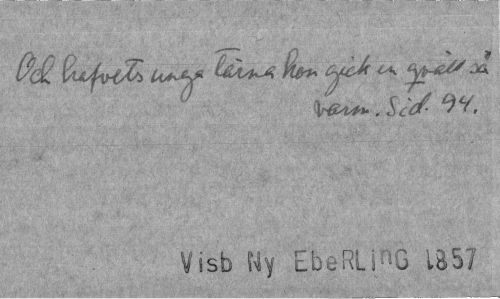 Och hafvets unga tärna hon gick en qväll så
varm. Sid. 94.
Visb Ny EbeRLinG 1857